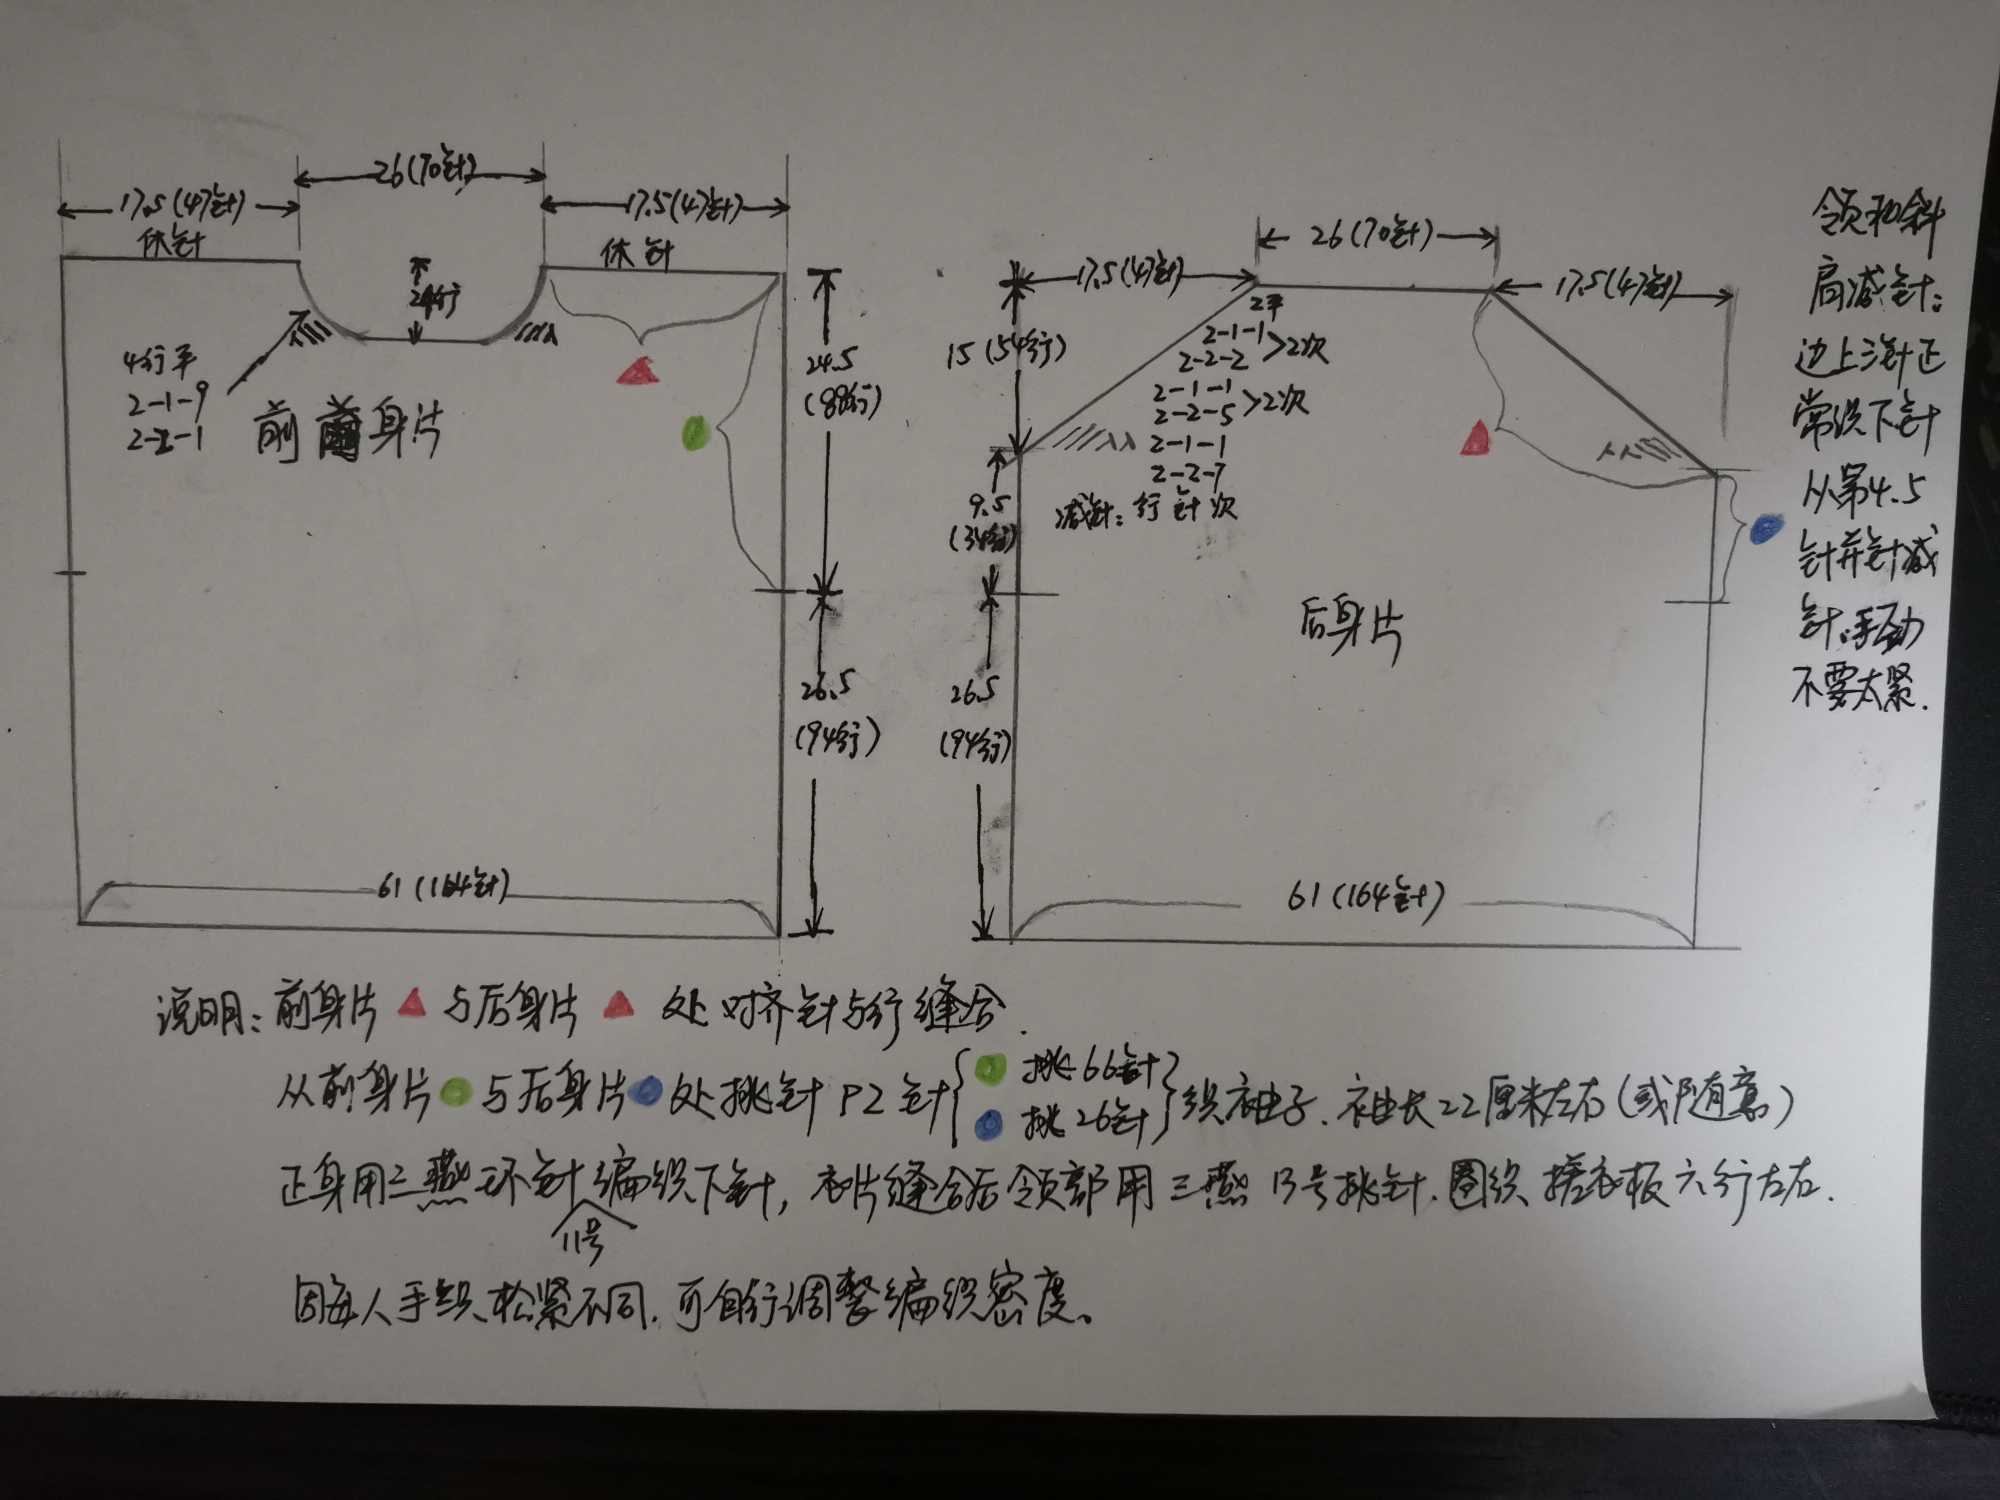 26(70针)
17.5(47针)
休针
17.5(47针)
休针
24行
4行平
2-1-9
2-2-1
前身片
24.5
(88行)
26.5
(94行)
61(164针)
26(70针)
17.5(47针)
17.5(47针)
15(54行)
2平
2-1-1
2-2-2 >2次
2-1-1
2-2-5 >2次
2-1-1
2-2-7
减针：行针次
9.5
(34行)
后身片
26.5
(94行)
61(164针)
领和斜
肩减针：
边上三针正
常织下针
从第4.5
针并针减
针，手劲
不要太紧.
说明：前身片▲与后身片▲处对齐针与行缝合.
从前身片与后身片处挑针92针{挑66针 挑26针}织袖子.袖长22厘米左右(或随意)
正身用三燕环针编织下针，衣片缝合后领部用三燕13号挑针.圈织搓衣板六行左右.
11号
因每人手织松紧不同.可自行调整编织密度。